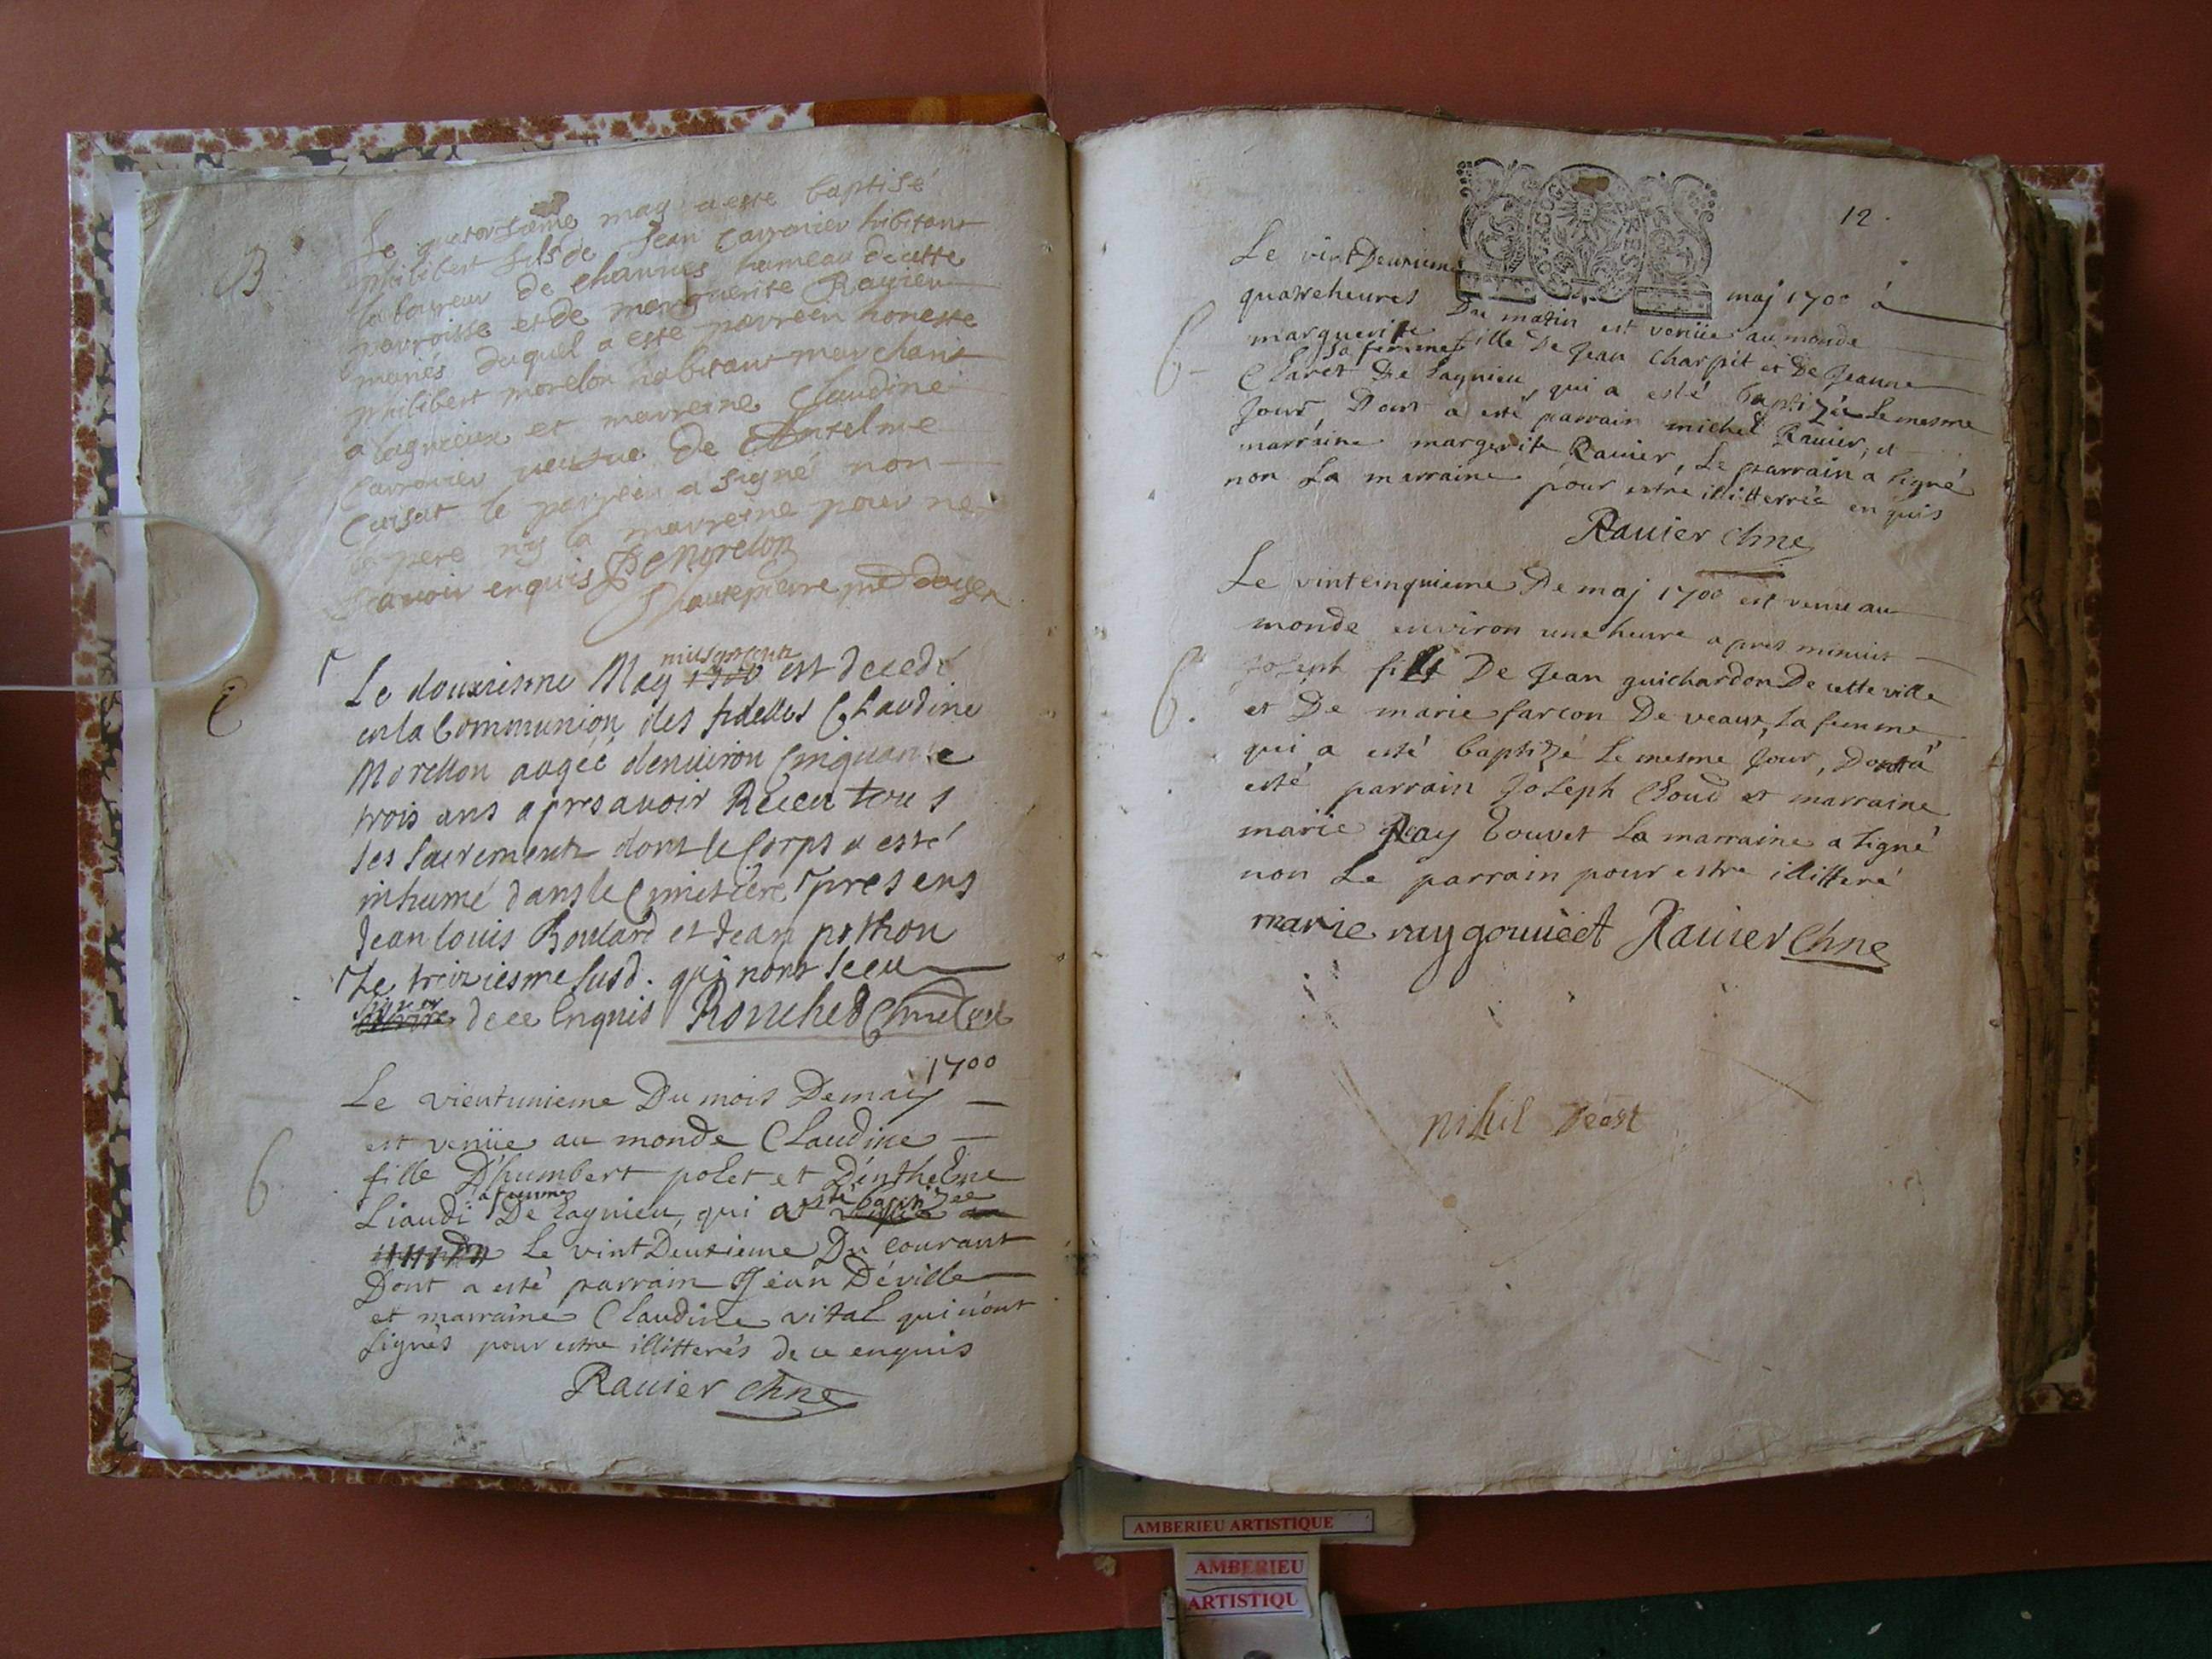 B
Le quatorsieme may a este baptisé
philibert fils de Jean Carronier hibitant
laboureur de chaunes hameau de cette
parroisse et de marguerite Ravier
mariés duquel a este parrein honeste
philibert morelon habitant marchant
a lagnieux et marreine Claudine
Carronier veufue de Anselme
Cuisat le parrein a signé non
le pere ny la marreine pour ne
scavoir enquis P Morelon
hautepierre doyen
E
Le douxiesme May milseptcents est decedé
en la Communion des fidelles Claudine
Morellon aagéé denuiron Cinquante
trois ans apres avoir Receu tous
ses sacrements dont le Corps a esté
inhumé dans le Cimistiere presens
Jean louis Boulard et Jean pithon
Le treiziesme susd. qui nont sceu
signer dece Enquis Ronchet Chne
1700
6
Le vientunieme Du mois De may
est venüe au monde Claudine
fille D'humbert polet et D'enthelme
Liaudi sa femme De Lagnieu, qui a esté baptizée
Le vint Deuxieme Du courant
Dont a esté parrain Jean Déville
et marraine Claudine vital qui n'ont
signés pour estre illitterés de ce enquis
Ravier chne
12.
Le vint Deuxieme maj 1700 á
6
quatre heures Du matin est venüe au monde
marguerite fille De Jean Charpit et De Jeanne
Claret sa femme De Lagnieu, qui a esté baptizée Le mesme
Jour, Dont a esté parrain michel Ravier, et
marraine margerite Ravier, Le parrain a signé
non La marraine pour estre illitterrée enquis
Ravier Chne
Le vintcinquieme De maj 1700 est venu au
monde environ une heure apres minuit
6.
Joseph fils De Jean guichardon De cette ville
et De marie farcon De veaux, sa femme
qui a esté baptizé Le mesme Jour, Dont a
esté parrain Joseph Choud et marraine
marie Ray Gouvet La marraine a signé
non Le parrain pour estre illitteré
marie ray gouueet Ravier Chne
nihil Deest
AMBERIEU ARTISTIQUE
AMBERIEU
ARTISTIQU